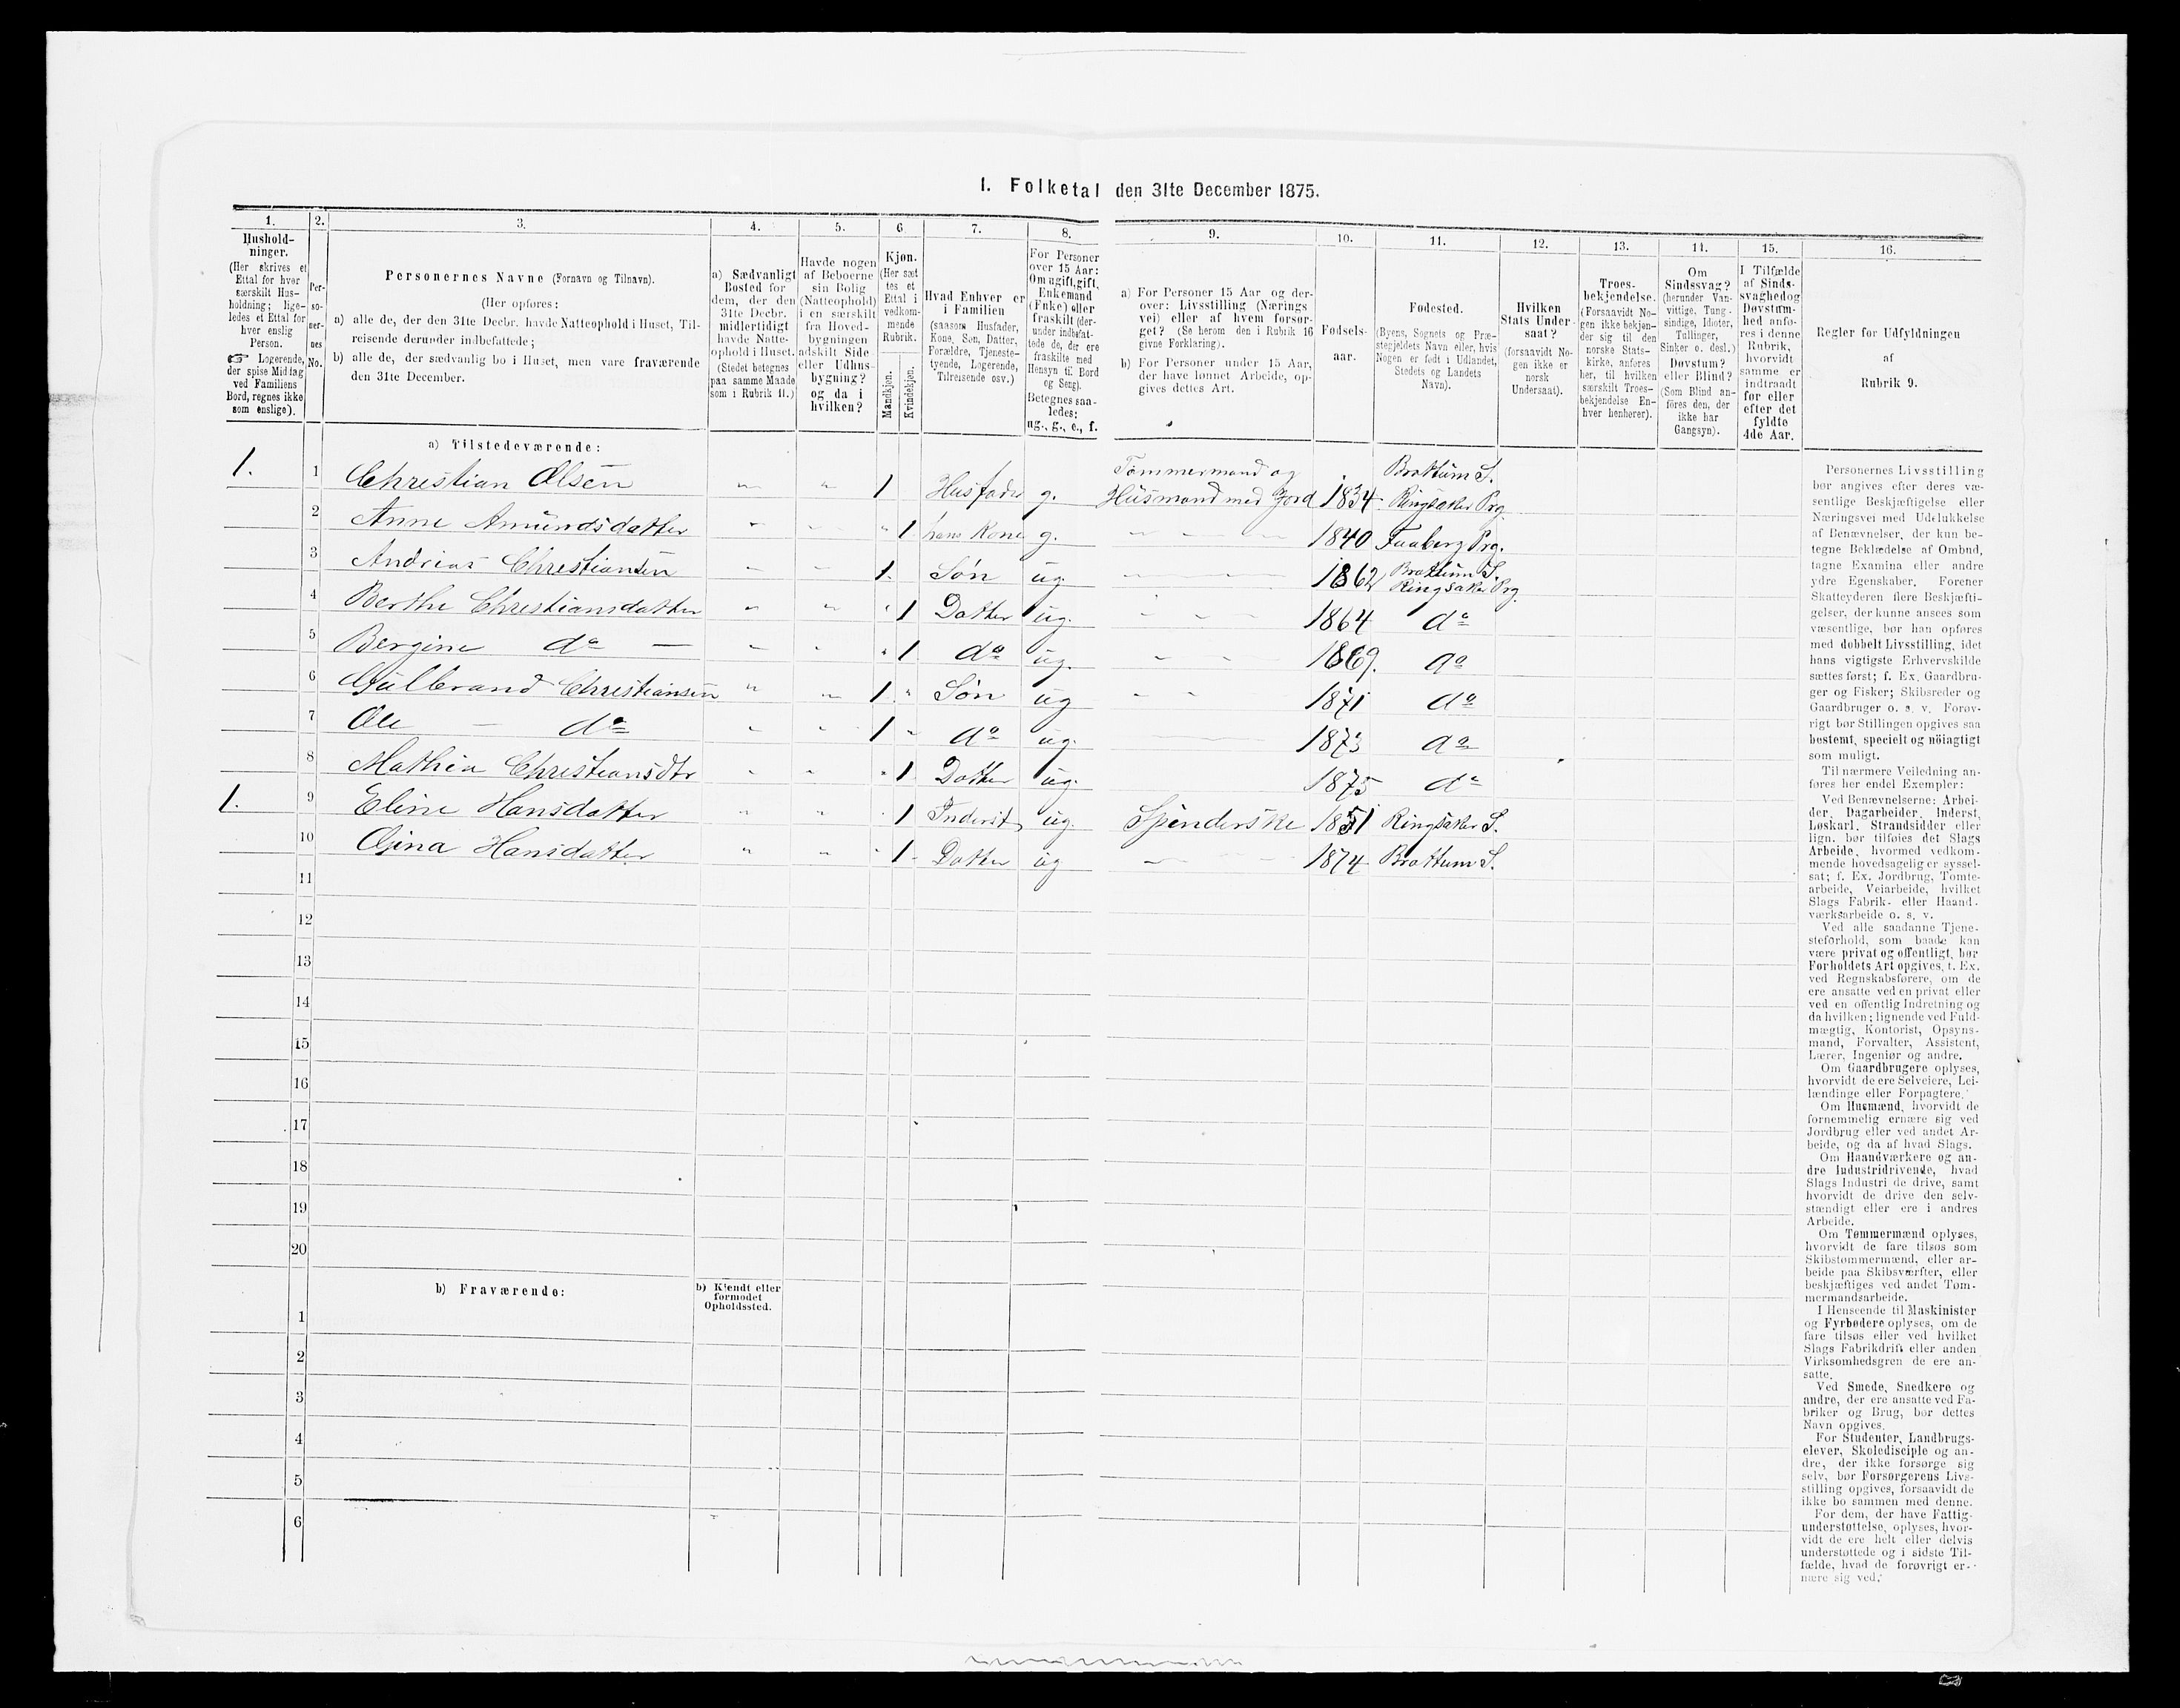 I. Folketal den 31te December 1875.
1. 2. 3. 4. 5. 6 7. 8. 9. 10. 11. 12. 13. 14. 15. 16.
Hushold-
ninger.
(Her skrives et
Ettal for hver
særskilt Hus-
holdning; lige-
ledes et Ettal for
hver enslig
Person.
☞ Logerende,
der spise Middag
ved Familiens
Bord, regnes ikke
som enslige).
Per-
so-
ner-
nes
No.
Personernes Navne (Fornavn og Tilnavn).
(Her opføres:
a) alle de, der den 31te Decbr. havde Natteophold i Huset, Til-
reisende derunder indbefattede;
b) alle de, der sædvanlig bo i Huset, men vare fraværende
den 31te December.
a) Sædvanligt
Bosted for
dem, der den
31te Decbr.
midlertidigt
havde Natte-
ophold i Huset.
(Stedet betegnes
paa samme Maade
som i Rubrik 11.)
Havde nogen
af Beboerne
sin Bolig
(Natteophold)
i en særskilt
fra Hoved-
bygningen
adskilt Side
eller Udhus-
bygning?
og da i
hvilken?
Kjøn.
(Her sæt
tes et
Ettal i
vedkom-
mende
Rubrik.
Mandkjøn.
Kvindekjøn.
Hvad Enhver er
i Familien
(saasom Husfader,
Kone, Søn, Datter,
Forældre, Tjeneste-
tyende, Logerende,
Tilreisende osv.)
For Personer
over 15 Aar:
Om ugift, gift,
Enkemand
(Enke) eller
fraskilt (der-
under indbefat-
tede de, der ere
fraskilte med
Hensyn til Bord
og Seng).
Betegnes saa-
ledes:
ug., g., e., f.
a) For Personer 15 Aar og der-
over: Livsstilling (Nærings
vei) eller af hvem forsør-
get? (Se herom den i Rubrik 16
givne Forklaring).
b) For Personer under 15 Aar,
der have lønnet Arbeide, op-
gives dettes Art.
Fødsels-
aar.
Fødested.
(Byens, Sognets og Præ-
stegjeldets Navn eller, hvis
Nogen er født i Udlandet,
Stedets og Landets
Navn).
Hvilken
Stats Under-
saat?
(forsaavidt No-
gen ikke er
norsk
Undersaat).
Troes-
bekjendelse.
(Forsaavidt No-
gen ikke bekjen-
der sig til den
norske Stats-
kirke, anføres
her, til hvilken
særskilt Troes-
bekjendelse En-
hver henhører).
Om
Sindssvag?
(herunder Van-
vittige, Tung-
sindige, Idioter,
Tullinger,
Sinker o. desl.)
Døvstum?
eller Blind?
(Som Blind an-
føres den, der
ikke har
Gangsyn).
I Tilfælde
af Sinds-
svaghed og
Døvstum-
hed anfø-
res i denne
Rubrik,
hvorvidt
samme er
indtraadt
før eller
efter det
fyldte
4de Aar.
Regler for Udfyldningen
af
Rubrik 9.
a) Tilstedeværende:
1. 1 Christian Olsen " " 1 Husfader g. Tømmermand og Husmand med Jord 1834 Brøttum S. Ringsaker Prg.
2 Anne Amundsdatter " " " 1 hans Kone g. " " " 1840 Faaberg Prg.
3 Andreas Christiansen " " 1. Søn ug. " " " 1862 Brøttum S. Ringsaker Prg.
4 Berthe Christiansdatter " " " 1 Datter ug. " " " 1864 do
5 Bergine do — " " " 1. do ug. " " " 1869. do
6 Gulbrand Christiansen " " 1. " Søn ug " " 1871 do
7 Ole — do " " 1 " do ug. " " 1873 do
8 Mathea Christiansdtr " " " 1. Datter ug. 1875 do
1. 9 Eline Hansdatter " " " 1 Inderst ug. Spinderske 1851 Ringsaker S.
10 Gina Hansdatter " " " 1. Datter ug " " 1874 Brøttum S.
11
12
13
14
15
16
17
18
19
20
b) Fraværende:
b) Kjendt eller
formodet
Opholdssted.
1
2
3
4
5
6
Personernes Livsstilling
bør angives efter deres væ-
sentlige Beskjæftigelse eller
Næringsvei med Udelukkelse
af Benævnelser, der kun be-
tegne Beklædelse af Ombud,
tagne Examina eller andre
ydre Egenskaber. Forener
Skatteyderen flere Beskjæfti-
gelser, der kunne ansees som
væsentlige, bør han opføres
med dobbelt Livsstilling, idet
hans vigtigste Erhvervskilde
sættes først; f. Ex. Gaardbru-
ger og Fisker; Skibsreder og
Gaardbruger o. s. v. Forøv-
rigt bør Stillingen opgives saa
bestemt, specielt og nöiagtigt
som muligt.
Til nærmere Veiledning an-
føres her endel Exempler:
Ved Benævnelserne: Arbei-
der, Dagarbeider, Inderst,
Løskarl, Strandsidder eller
lign. bør tilføies det Slags
Arbeide, hvormed vedkom-
mende hovedsagelig er syssel-
sat; f. Ex. Jordbrug, Tomte-
arbeide, Veiarbeide, hvilket
Slags Fabrik- eller Haand-
værksarbeide o. s. v.
Ved alle saadanne Tjene-
steforhold, som baade kan
være privat og offentligt, bør
Forholdets Art opgives, t. Ex.
ved Regnskabsførere, om de
ere ansatte ved en privat eller
ved en offentlig Indretning og
da hvilken; lignende ved Fuld-
mægtig, Kontorist, Opsyns-
mand, Forvalter, Assistent,
Lærer, Ingeniør og andre.
Om Gaardbrugere oplyses,
hvorvidt de ere Selveiere, Lei-
lændinge eller Forpagtere.
Om Husmænd, hvorvidt de
fornemmelig ernære sig ved
Jordbrug eller ved andet Ar-
beide, og da af hvad Slags.
Om Haandværkere og an-
dre Industridrivende, hvad
Slags Industri de drive, samt
hvorvidt de drive den selv-
stændigt eller ere i andres
Arbeide.
Om Tømmermænd oplyses,
hvorvidt de fare tilsøs som
Skibstømmermænd, eller ar-
beide paa Skibsværfter, eller
beskjæftiges ved andet Tøm-
mermandsarbeide.
I Henseende til Maskinister
og Fyrbødere oplyses, om de
fare tilsøs eller ved hvilket
Slags Fabrikdrift eller anden
Virksomhedsgren de ere an-
satte.
Ved Smede, Snedkere og
andre, der ere ansatte ved Fa-
briker og Brug, bør dettes
Navn opgives.
For Studenter, Landbrugs-
elever, Skoledisciple og an-
dre, der ikke forsørge sig
selv, bør Forsørgerens Livs-
stilling opgives, forsaavidt de
ikke bo sammen med denne.
For dem, der have Fattig-
understøttelse, oplyses, hvor-
vidt de ere helt eller delvis
understøttede og i sidste Til-
fælde, hvad de forøvrigt er-
nære sig ved.